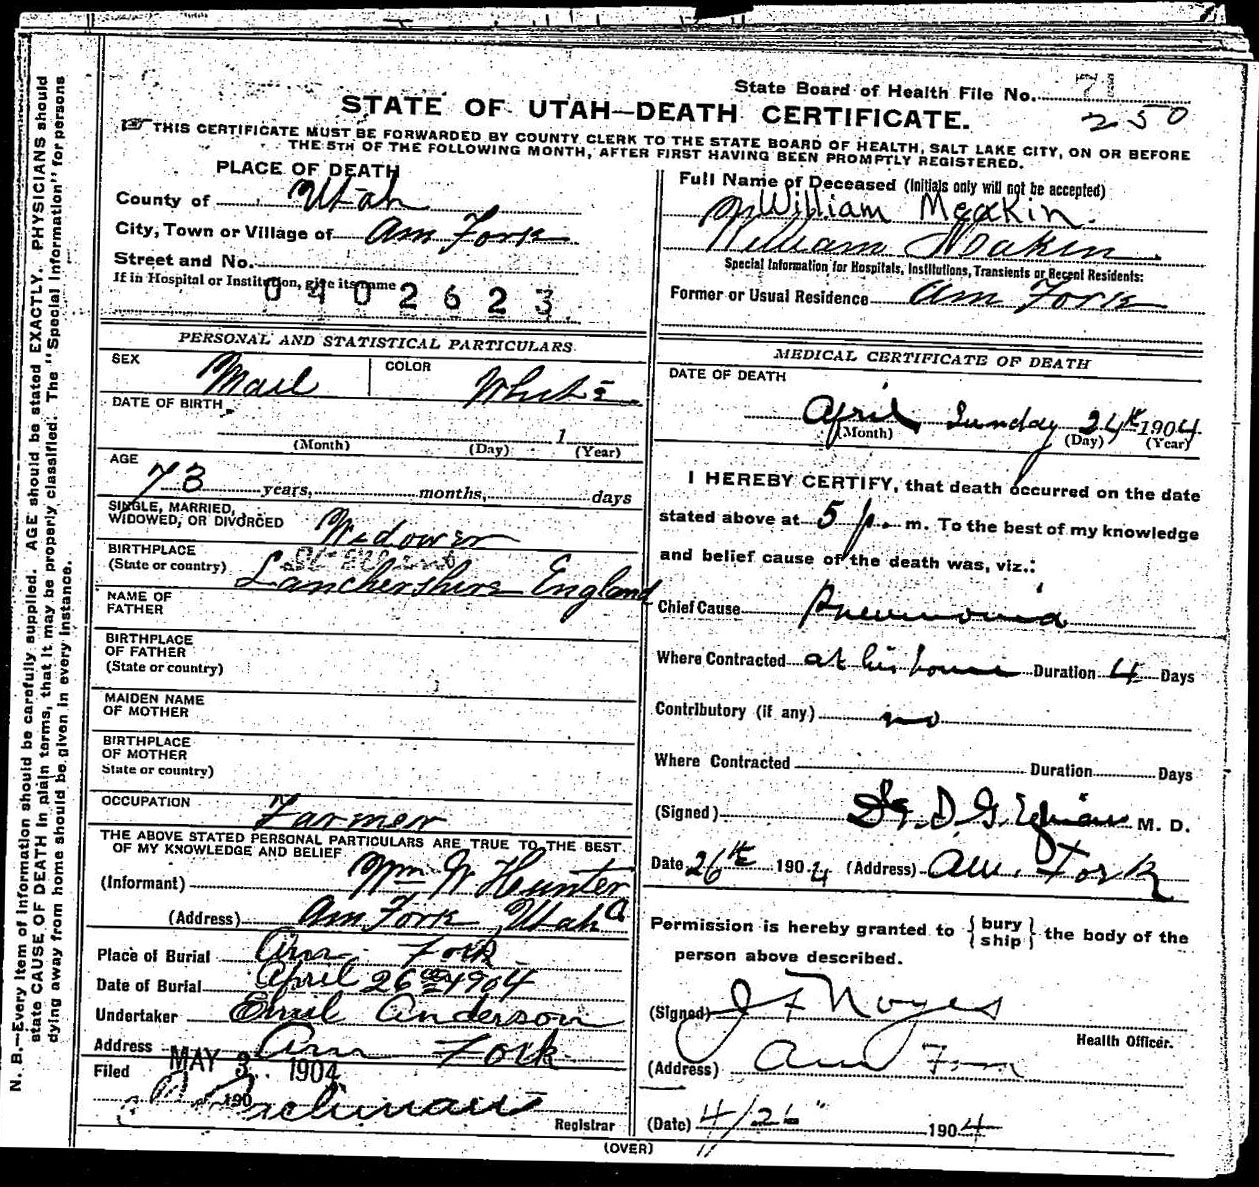 State Board of Health File No. 71
250
STATE OF UTAH—DEATH CERTIFICATE.
THIS CERTIFICATE MUST BE FORWARDED BY COUNTY CLERK TO THE STATE BOARD OF HEALTH, SALT LAKE CITY, ON OR BEFORE
THE 5TH OF THE FOLLOWING MONTH, AFTER FIRST HAVING BEEN PROMPTLY REGISTERED.
PLACE OF DEATH
County of Utah
City, Town or Village of Am Fork
Street and No.
If in Hospital or Institution, give its name
0402623
Full Name of Deceased (Initials only will not be accepted)
William Meakin.
William Meakin.
Special Information for Hospitals, Institutions, Transients or Recent Residents:
Former or Usual Residence Am Fork
PERSONAL AND STATISTICAL PARTICULARS
SEX Mail COLOR White
DATE OF BIRTH
1
(Month) (Day) (Year)
AGE
73 years, months, days
SINGLE, MARRIED,
WIDOWED, OR DIVORCED Widower
BIRTHPLACE
(State or country) Lanchershire England
NAME OF
FATHER
BIRTHPLACE
OF FATHER
(State or country)
MAIDEN NAME
OF MOTHER
BIRTHPLACE
OF MOTHER
State or country)
OCCUPATION Farmer
THE ABOVE STATED PERSONAL PARTICULARS ARE TRUE TO THE BEST
OF MY KNOWLEDGE AND BELIEF
(Informant) Wm W Hunter
(Address) Am Fork Utah
Place of Burial Am Fork
Date of Burial April 26 1904
Undertaker Emil Anderson
Address Am Fork
Filed MAY 3 1904
190
Registrar
MEDICAL CERTIFICATE OF DEATH
DATE OF DEATH
April Sunday 24th 1904
(Month) (Day) (Year)
I HEREBY CERTIFY, that death occurred on the date
stated above at 5 p. m. To the best of my knowledge
and belief cause of the death was, viz.:
Chief Cause Pneumonia
Where Contracted at his home Duration 4 Days
Contributory (if any) no
Where Contracted Duration Days
(Signed) Dr. D. G. M. D.
Date 26th 1904 (Address) Am. Fork
Permission is hereby granted to {bury
ship} the body of the
person above described.
(Signed) J F Noyes
Health Officer.
(Address) Am
(Date) 4/26" 1904
(OVER)
N. B.—Every item of information should be carefully supplied. AGE should be stated EXACTLY. PHYSICIANS should
state CAUSE OF DEATH in plain terms, that it may be properly classified. The "Special Information" for persons
dying away from home should be given in every instance.